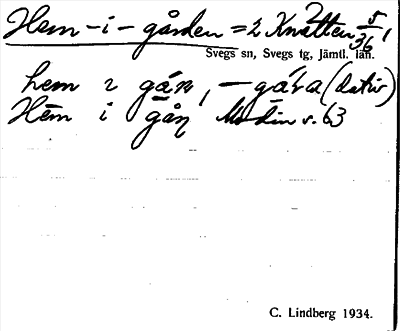 Hem-i-gården = 2 Knätten 5/36 1
Svegs sn, Svegs tg, Jämtl. län.
hem i gán, -gáʹra (dativ)
Hēm i gån Modin s. 63
C. Lindberg 1934.